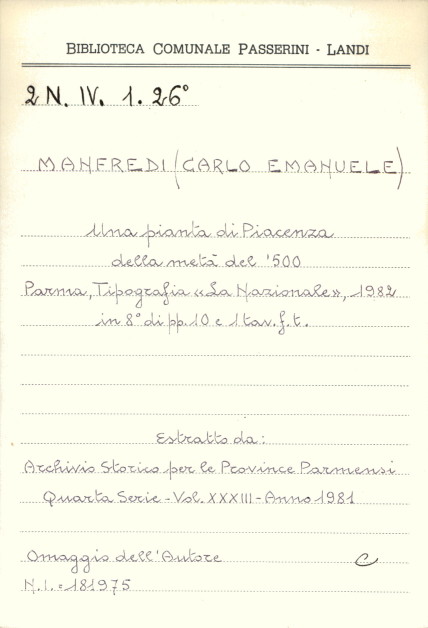 BIBLIOTECA COMUNALE PASSERINI - LANDI
2 N. IV. 1. 26°
MANFREDI (CARLO EMANUELE)
Una pianta di Piacenza
della metà del '500
Parma, Tipografia «La Nazionale», 1982
in 8° di pp. 10 e 1 tav. f. t.
Estratto da:
Archivio Storico per le Province Parmensi
Quarta Serie - Vol. XXXIII - Anno 1981
Omaggio dell'Autore C
N.I. = 181975